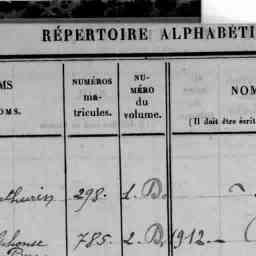 RÉPERTOIRE ALPHABÉTI
MS
OMS.
NUMÉROS
ma-
tricules.
NU-
MÉRO
du
volume.
NOM
(Il doit être écrit
thurin 298. 1. D.
phonse 785. 2. D. 1912.